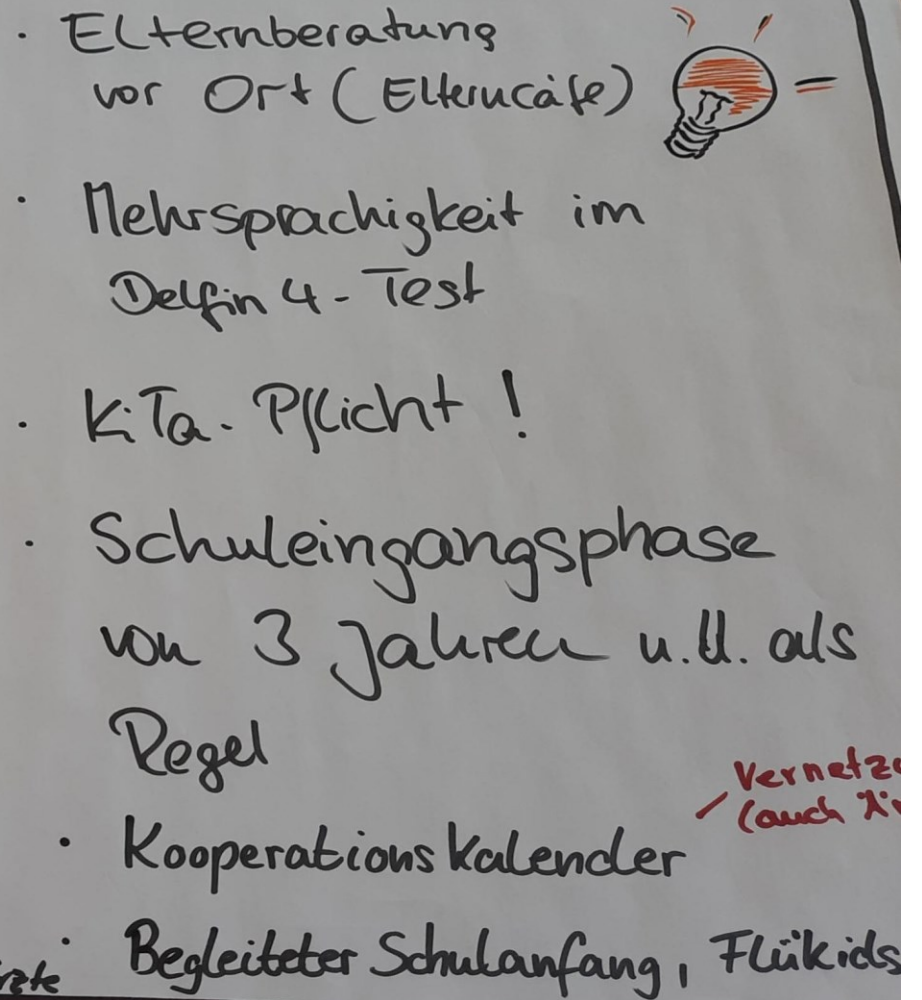 · Elternberatung
vor Ort (Elterncafe)
· Mehrsprachigkeit im
Delfin 4 - Test
· KiTa - Pflicht !
· Schuleingangsphase
von 3 Jahren u.U. als
Regel
Vernetz
(auch
· Kooperationskalender
· Begleiteter Schulanfang, Flükids
rzte